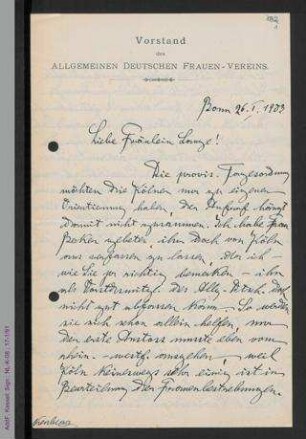 Vorstand
des
ALLGEMEINEN DEUTSCHEN FRAUEN-VEREINS.
Bonn 26. I. 1903
Liebe Fräulein Lange!
Die provis. Tagesordnung
möchten die Kölner nur zu eigener
Orientierung haben, der Aufruf hängt
damit nicht zusammen. Ich habe Frau
gebeten, ihn doch von Köln
aus abfassen zu lassen, da ich
wie Sie so richtig bemerken – ihn
als Vorstandsmitgl. des Allg. Dtsch. 
nicht gut abfassen kann. So werden
sie sich schon allein helfen, nur
den erste Anstoss musste eben vom
rhein.-westf. ausgehen, weil
Köln keineswegs sehr einig ist in
Beurteilung der Frauenbestrebungen.